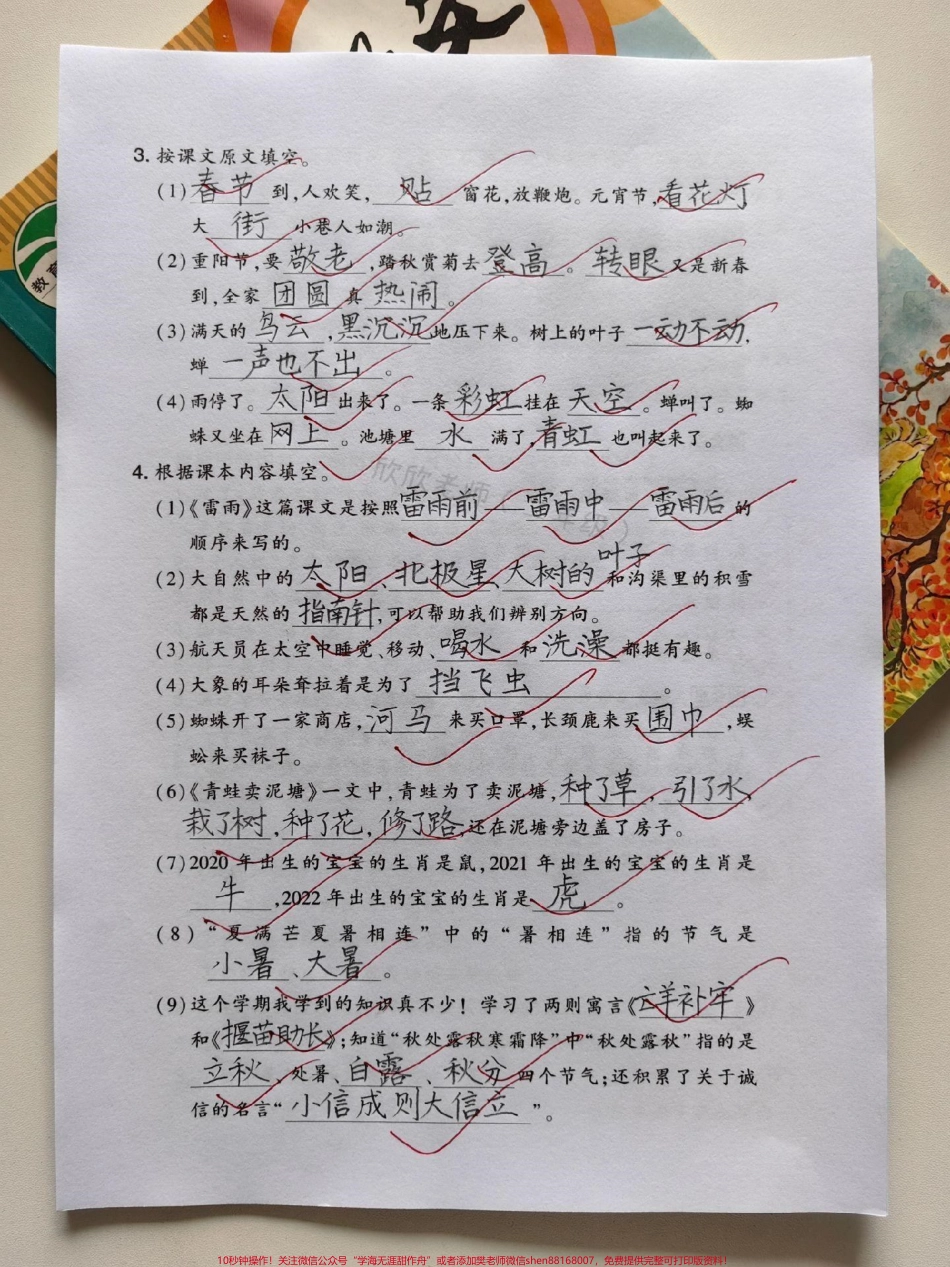 教育
3. 按课文原文填空。
(1) 春节 到,人欢笑, 贴 窗花,放鞭炮。元宵节,看花灯
大 街 小巷人如潮。
(2) 重阳节,要 敬老 ,踏秋赏菊去 登高 。 转眼 又是新春
到,全家 团圆 真 热闹 。
(3) 满天的 乌云 , 黑沉沉 地压下来。树上的叶子 一动不动,
蝉 一声也不出 。
(4) 雨停了。 太阳 出来了。一条 彩虹 挂在 天空 。蝉叫了。蜘
蛛又坐在 网上 。池塘里 水 满了, 青虹 也叫起来了。
4. 根据课本内容填空。
欣欣老师
(1)《雷雨》这篇课文是按照 雷雨前 —— 雷雨中 —— 雷雨后 的
顺序来写的。
(2) 大自然中的 太阳 、 北极星 、 大树的叶子 和沟渠里的积雪
都是天然的 指南针 ,可以帮助我们辨别方向。
(3) 航天员在太空中睡觉、移动、 喝水 和 洗澡 都挺有趣。
(4) 大象的耳朵耷拉着是为了 挡飞虫 。
(5) 蜘蛛开了一家商店, 河马 来买口罩,长颈鹿来买 围巾 ,蜈
蚣来买袜子。
(6)《青蛙卖泥塘》一文中,青蛙为了卖泥塘, 种了草 , 引了水,
栽了树 , 种了花 , 修了路 ,还在泥塘旁边盖了房子。
(7) 2020 年出生的宝宝的生肖是鼠,2021 年出生的宝宝的生肖是
牛 ,2022 年出生的宝宝的生肖是 虎 。
(8) “夏满芒夏暑相连”中的“暑相连”指的节气是
小暑 、 大暑 。
(9) 这个学期我学到的知识真不少！学习了两则寓言《亡羊补牢》
和《揠苗助长》;知道“秋处露秋寒霜降”中“秋处露秋”指的是
立秋 、处暑、 白露 、 秋分 四个节气;还积累了关于诚
信的名言“ 小信成则大信立 ”。
10秒钟操作！关注微信公众号“学海无涯甜作舟”或者添加樊老师微信shen88168007，免费提供完整可打印版资料！